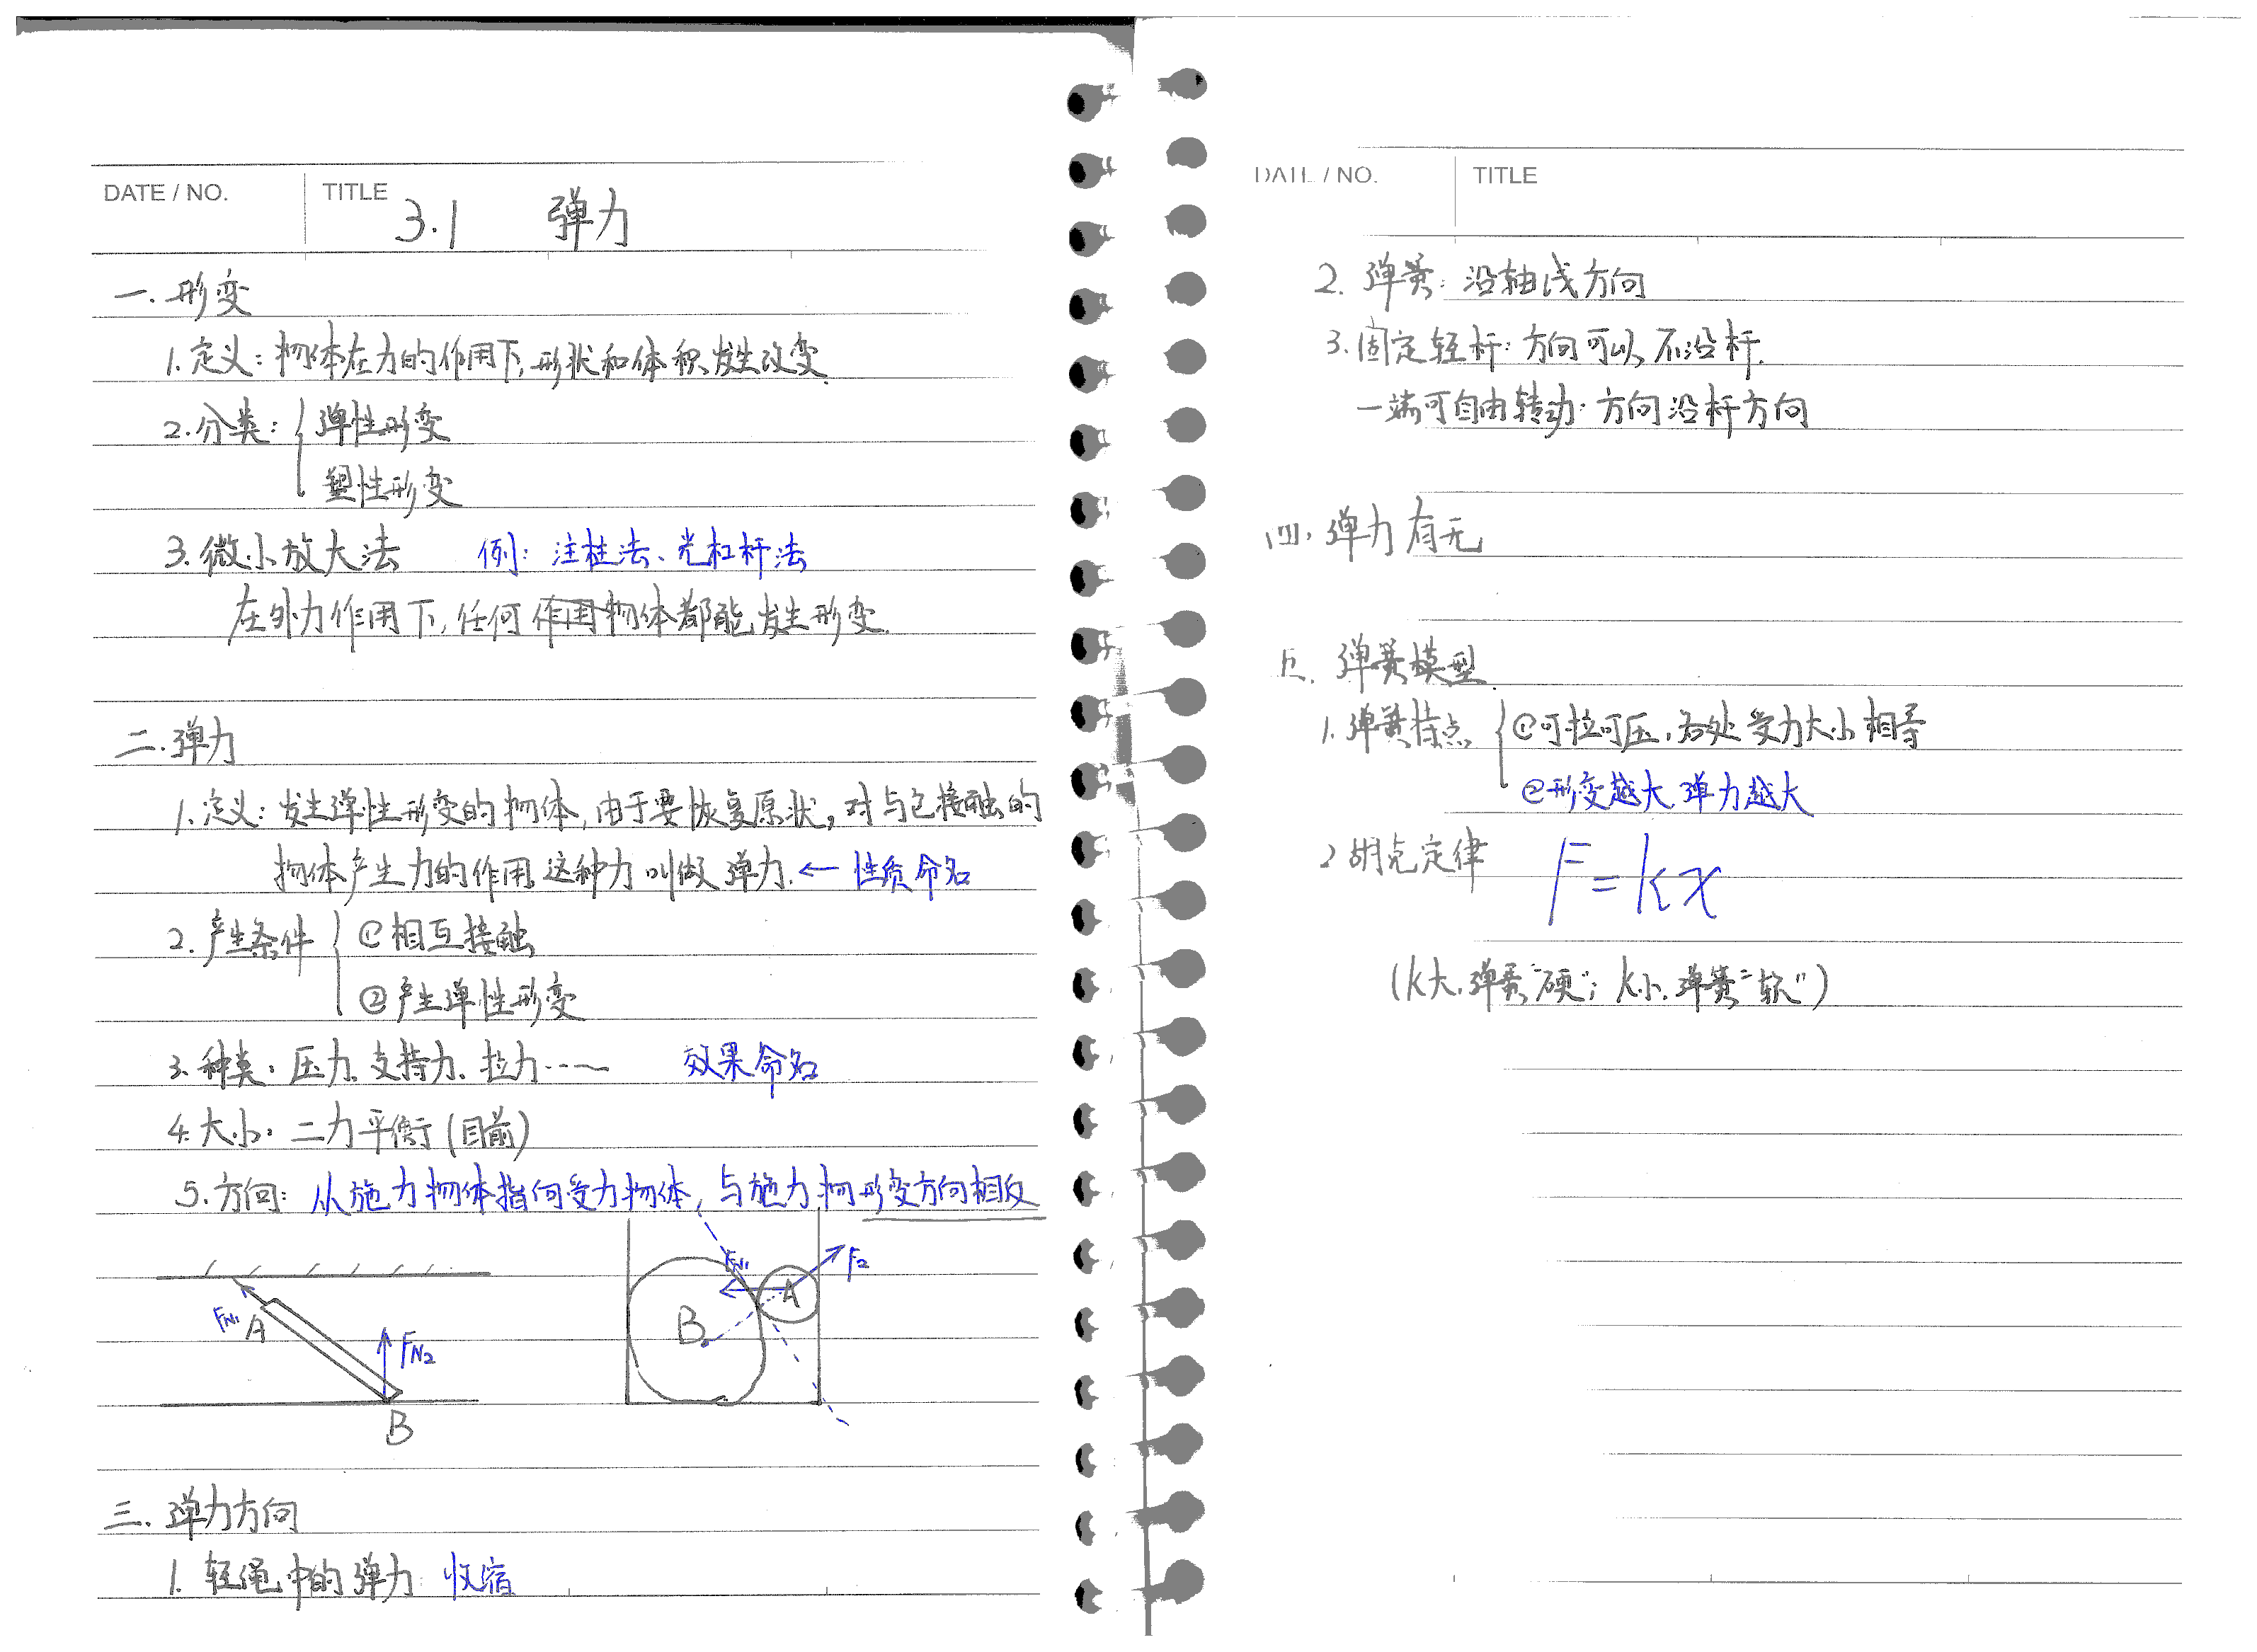 DATE / NO. TITLE 3.1 弹力
一. 形变
1. 定义: 物体在力的作用下, 形状和体积发生改变.
2. 分类: { 弹性形变
塑性形变
3. 微小放大法 例: 注柱法、光杠杆法
在外力作用下, 任何作用物体都能发生形变.
二. 弹力
1. 定义: 发生弹性形变的物体, 由于要恢复原状, 对与它接触的
物体产生力的作用. 这种力叫做弹力. ← 性质命名
2. 产生条件 { ①相互接触
②产生弹性形变
3. 种类: 压力、支持力、拉力…… 效果命名
4. 大小: 二力平衡 (目前)
5. 方向: 从施力物体指向受力物体, 与施力物形变方向相反
FN1 A FN2 B
FN1 A F2 B
三. 弹力方向
1. 轻绳中的弹力: 收缩
DATE / NO. TITLE
2. 弹簧: 沿轴线方向
3. 固定轻杆: 方向可以不沿杆.
一端可自由转动: 方向沿杆方向
四. 弹力有无
五. 弹簧模型
1. 弹簧特点 { ①可拉可压, 各处受力大小相等
②形变越大, 弹力越大
2 胡克定律 F=kx
(k大, 弹簧"硬"; k小, 弹簧"软")